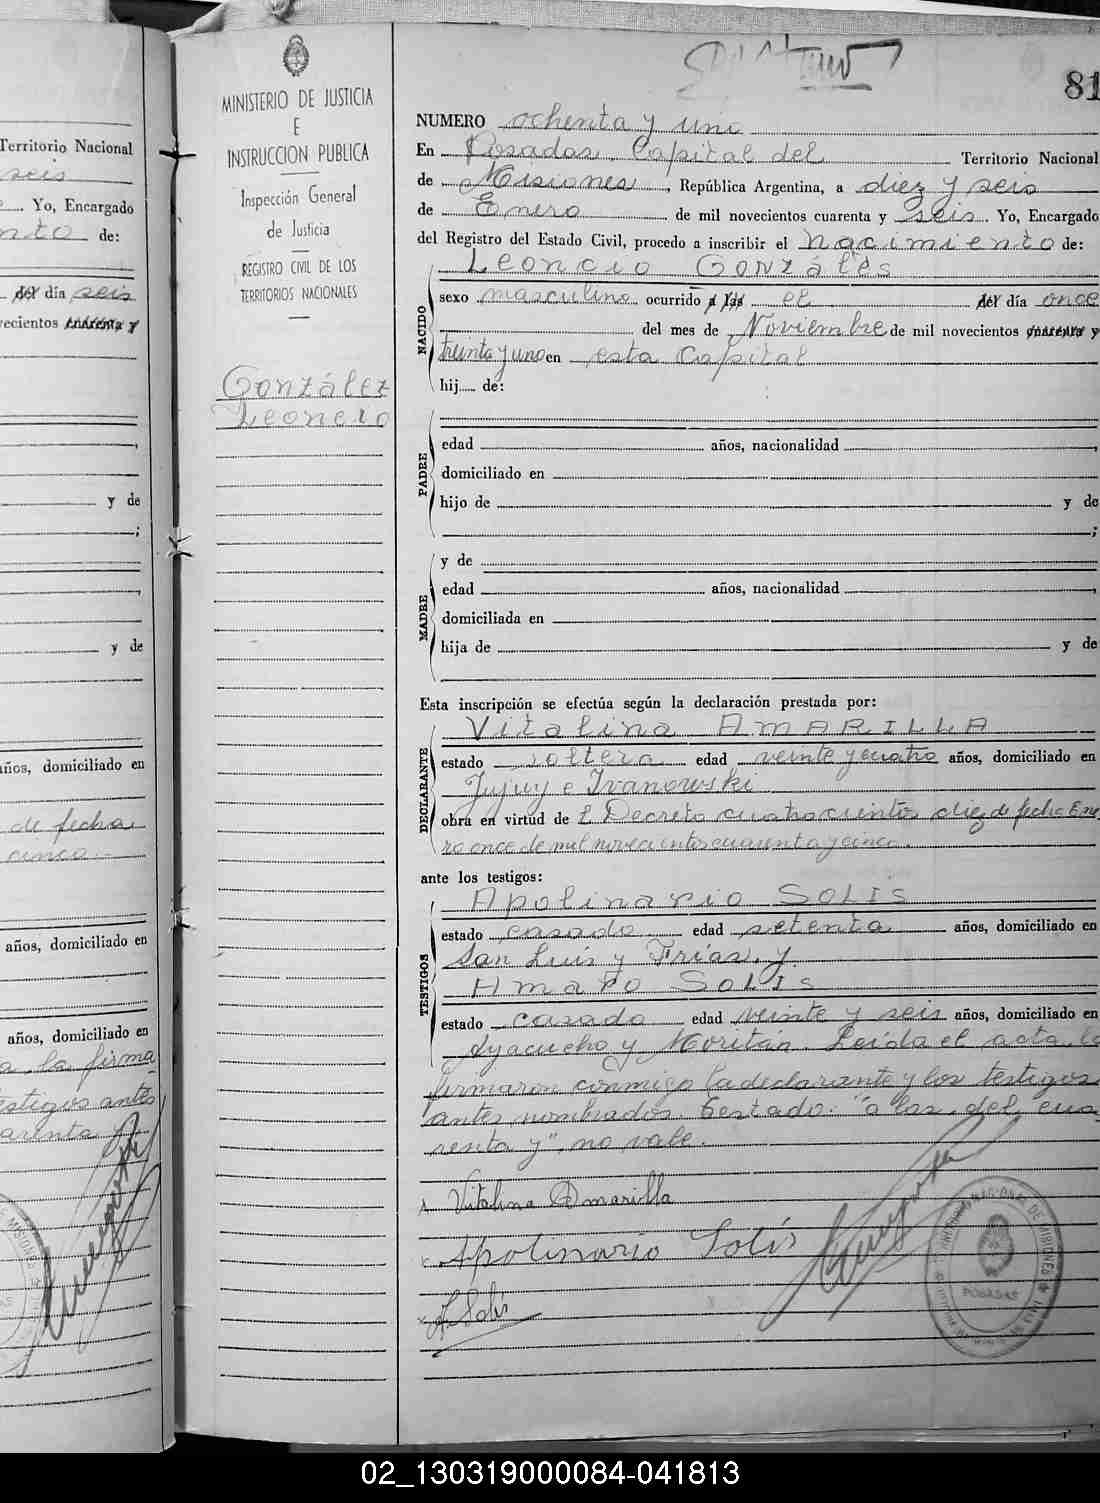 Territorio Nacional
seis
Yo, Encargado
nto de:
del día seis
vecientos cuarenta y
y de
;
y de
años, domiciliado en
de fecha
cinco.
años, domiciliado en
años, domiciliado en
a la firma
estigos antes
arenta y
MINISTERIO DE JUSTICIA
E
INSTRUCCION PUBLICA
Inspección General
de Justicia
REGISTRO CIVIL DE LOS
TERRITORIOS NACIONALES
González
Leoncio
81
NUMERO ochenta y uno
En Posadas, Capital del Territorio Nacional
de Misiones, República Argentina, a diez y seis
de Enero de mil novecientos cuarenta y seis. Yo, Encargado
del Registro del Estado Civil, procedo a inscribir el nacimiento de:
Leoncio Gonzáles
NACIDO
sexo masculino ocurrido a las el del día once
del mes de Noviembre de mil novecientos cuarenta y
treinta y uno en esta Capital
hij de:
PADRE
edad años, nacionalidad ,
domiciliado en
hijo de y de
;
MADRE
y de
edad años, nacionalidad ,
domiciliada en
hija de y de
Esta inscripción se efectúa según la declaración prestada por:
DECLARANTE
Vitalina AMARILLA
estado soltera edad veinte y cuatro años, domiciliado en
Jujuy e Ivanowski
obra en virtud de l Decreto cuatrocientos diez de fecha Ene
ro once de mil novecientos cuarenta y cinco.
ante los testigos:
TESTIGOS
Apolinario SOLIS
estado casado edad setenta años, domiciliado en
San Luis y Frías. y
Amaro SOLIS
estado casado edad veinte y seis años, domiciliado en
Ayacucho y Moritán. Leída el acta la
firmaron conmigo la declarante y los testigos
antes nombrados. Testado: "a las, del, cua
renta y", no vale.
Vitalina Amarilla
Apolinario Solís
A. Solís
POSADAS
02_130319000084-041813